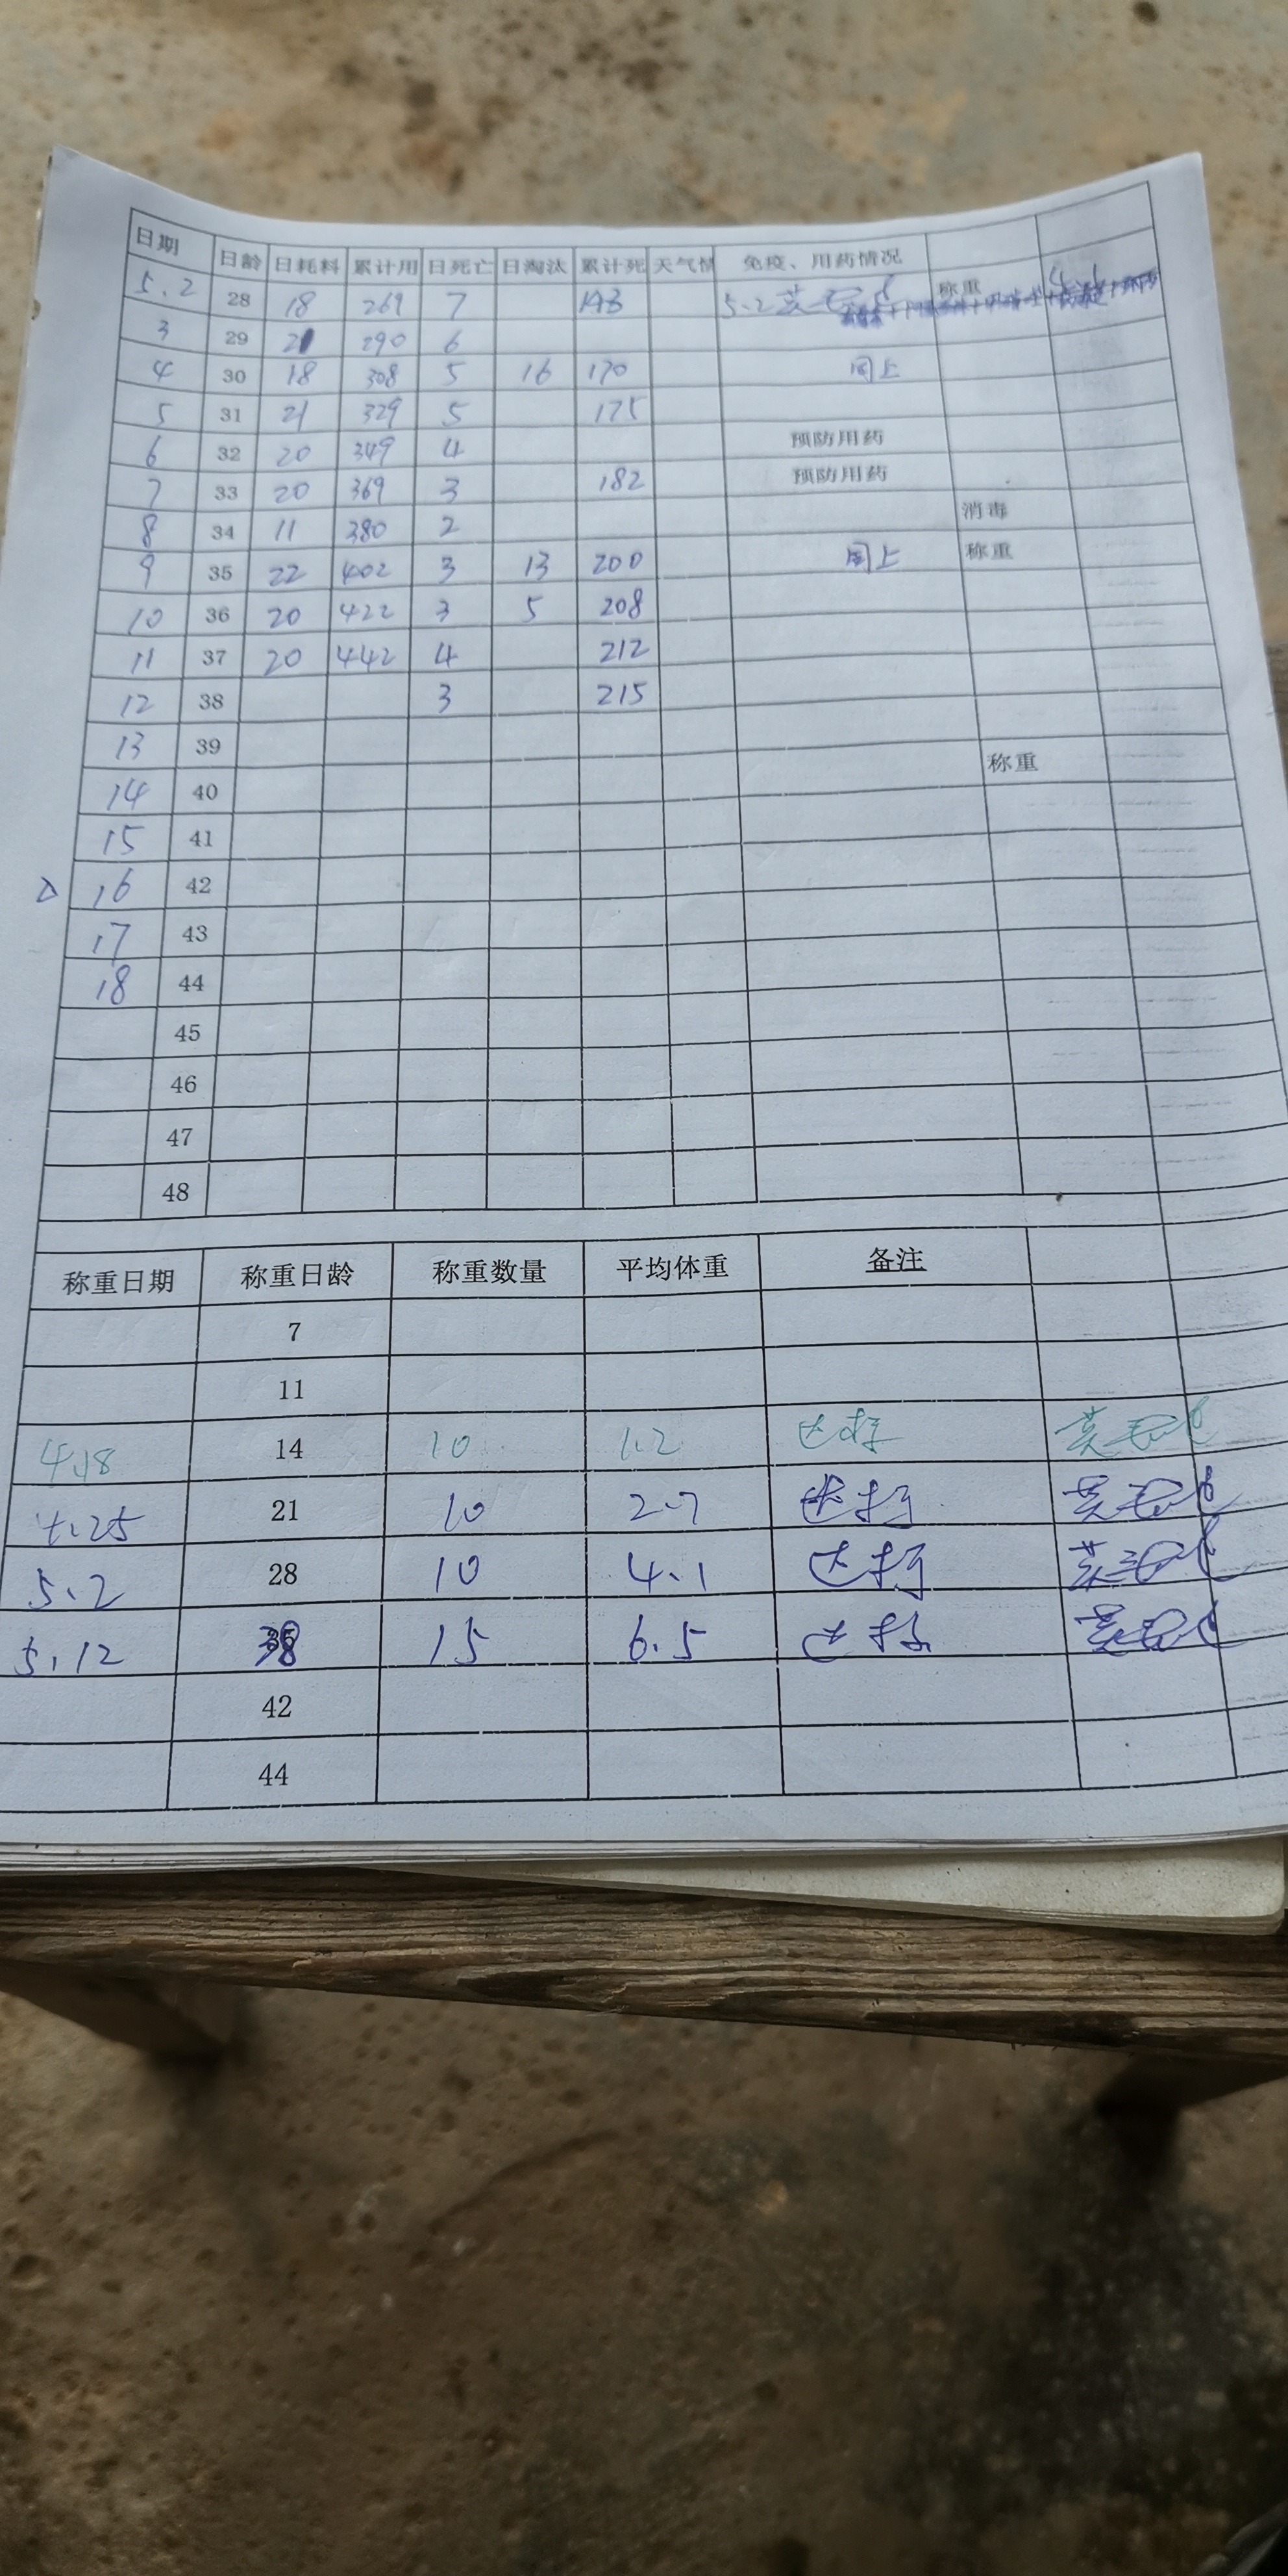 日期 日龄 日耗料 累计用 日死亡 日淘汰 累计死 天气情 免疫、用药情况
5.2 28 18 269 7 143 5.2 称重
3 29 21 290 6
4 30 18 308 5 16 170 同上
5 31 21 329 5 175
6 32 20 349 4 预防用药
7 33 20 369 3 182 预防用药
8 34 11 380 2 消毒
9 35 22 402 3 13 200 同上 称重
10 36 20 422 3 5 208
11 37 20 442 4 212
12 38 3 215
13 39 称重
14 40
15 41
16 42
17 43
18 44
45
46
47
48
称重日期 称重日龄 称重数量 平均体重 备注
7
11
4.18 14 10 1.2 达标
4.25 21 10 2.7 达标
5.2 28 10 4.1 达标
5.12 38 15 6.5 达标
42
44